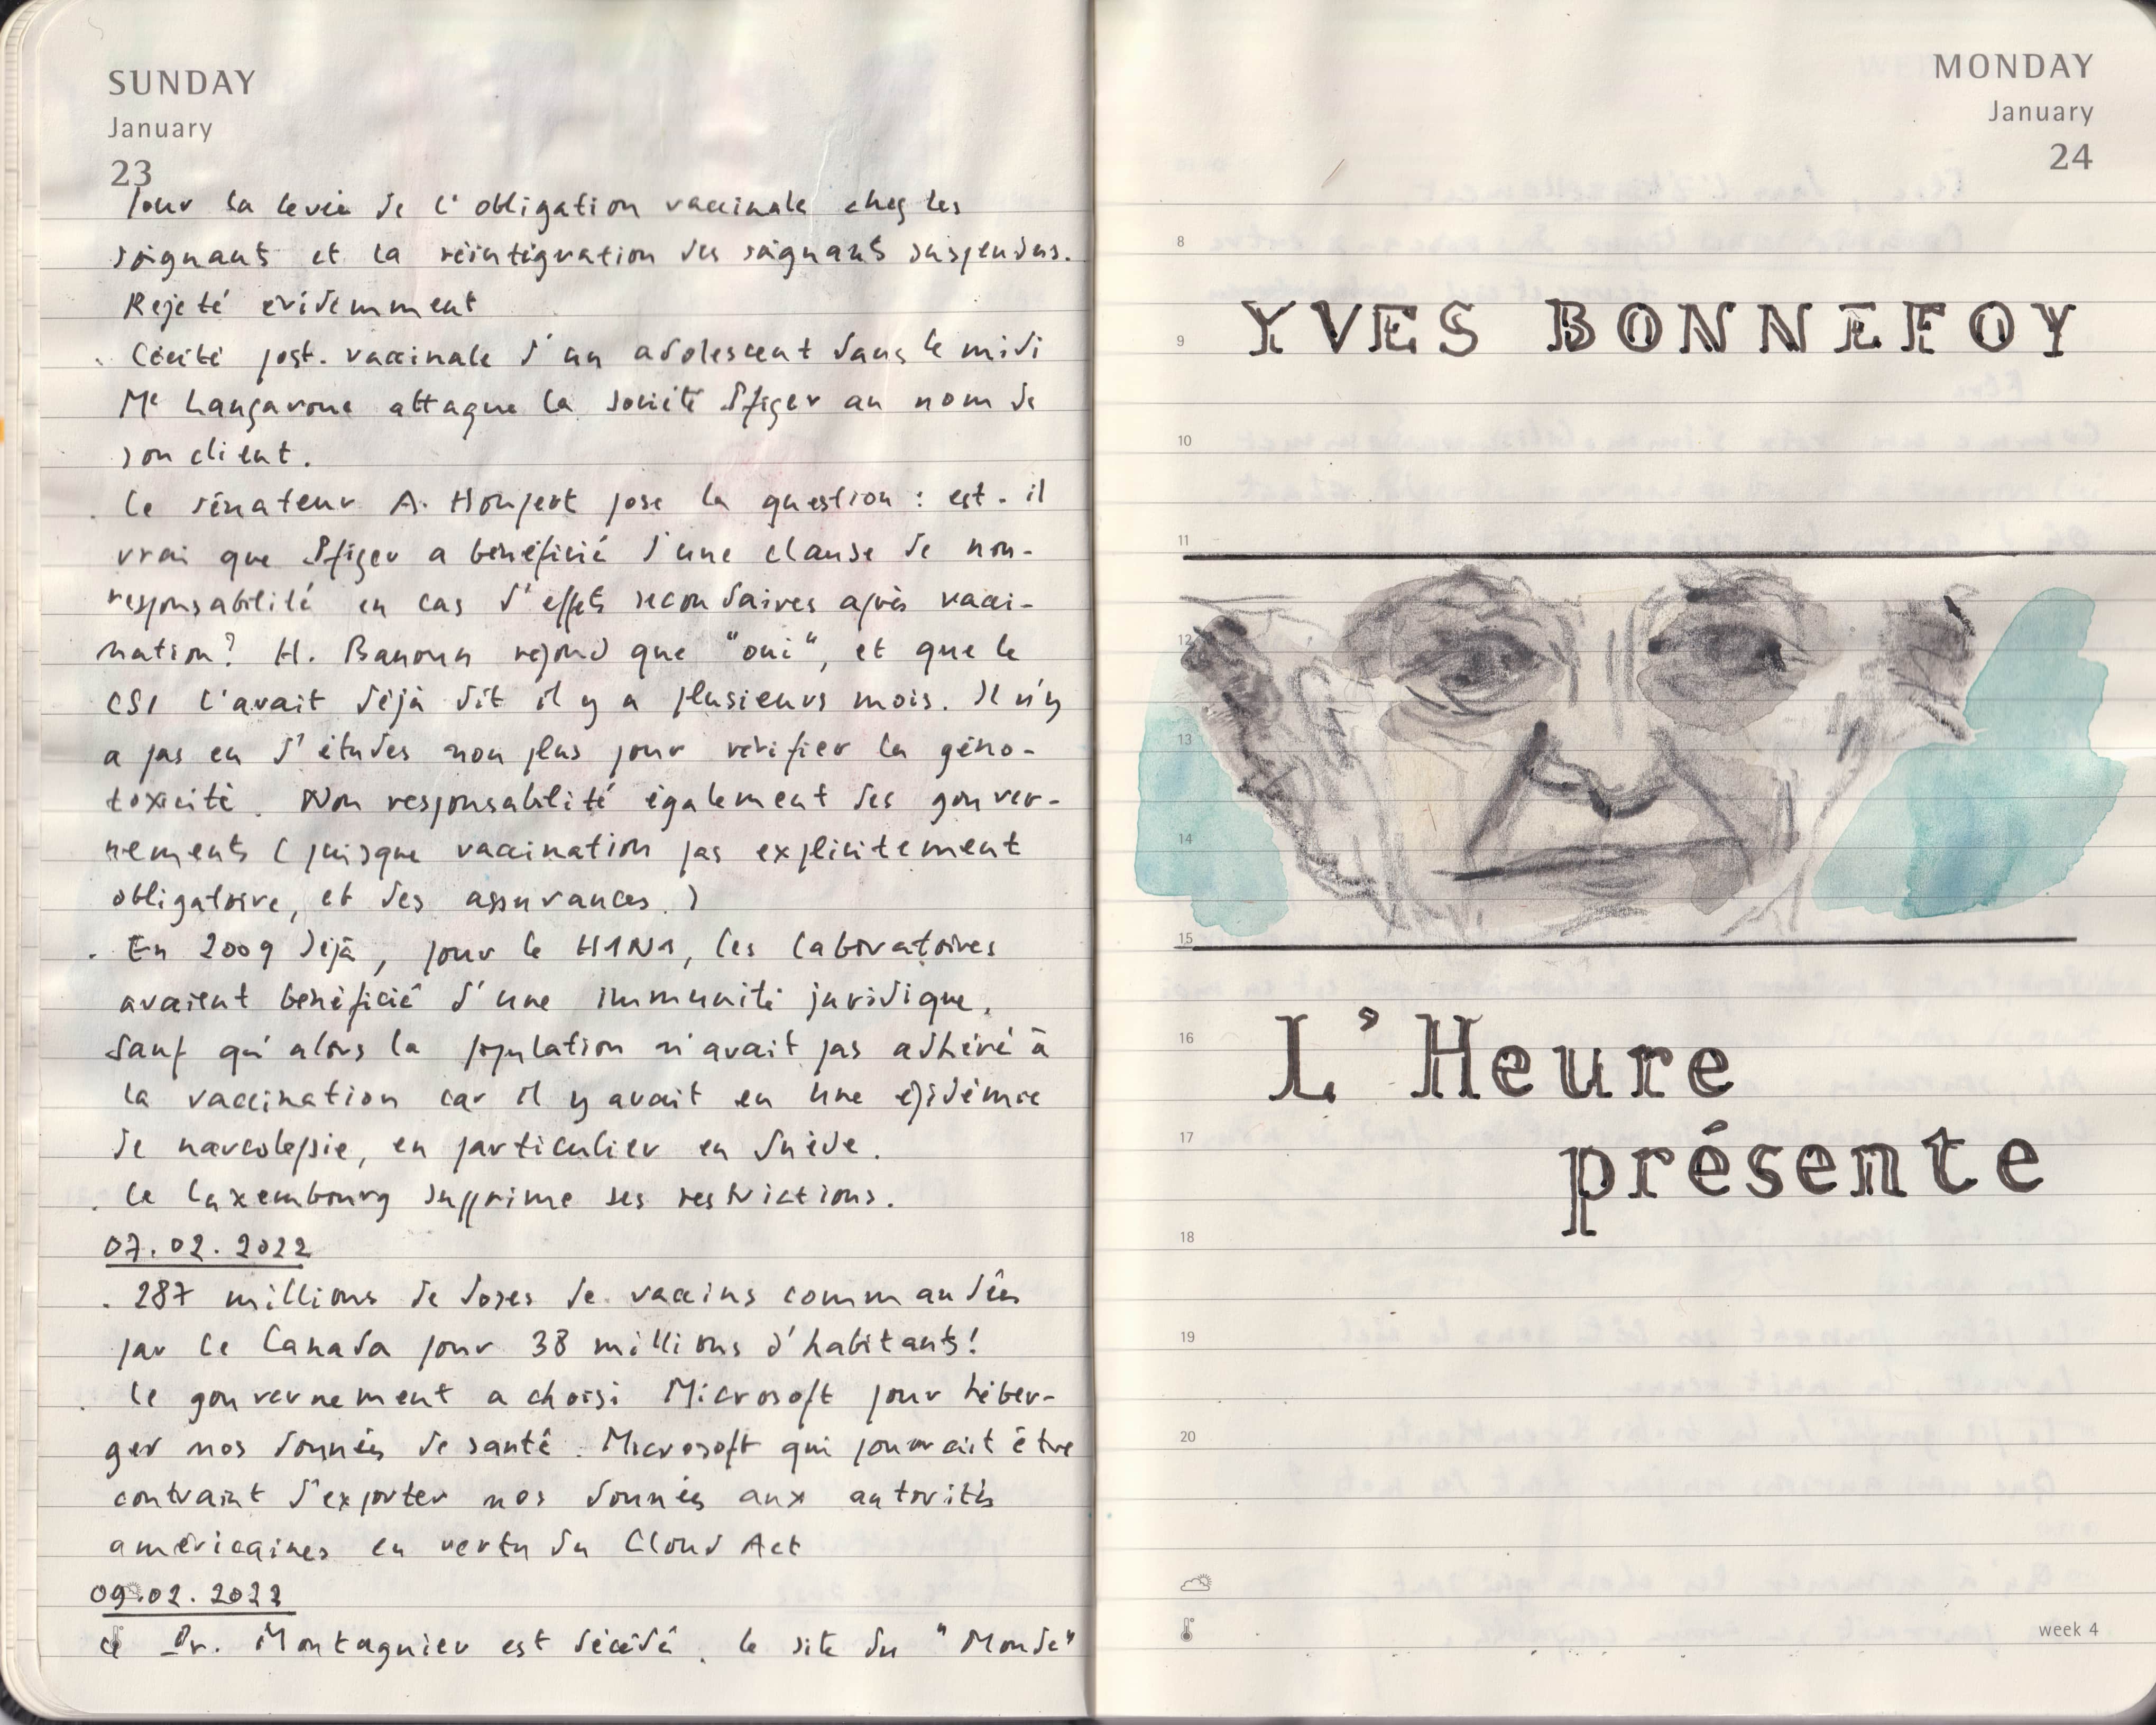 SUNDAY
January
23
Pour la levée de l'obligation vaccinale chez les
soignants et la réintégration des soignants suspendus.
Rejeté évidemment
. Cécité post-vaccinale d'un adolescent dans le midi
Me Langarone attaque la société Pfizer au nom de
son client.
. Le sénateur A. Houpert pose la question : est-il
vrai que Pfizer a bénéficié d'une clause de non-
responsabilité en cas d'effets secondaires après vacci-
nation? H. Banoun répond que "oui", et que le
CSI l'avait déjà dit il y a plusieurs mois. Il n'y
a pas eu d'études non plus pour vérifier la géno-
toxicité. Non responsabilité également des gouver-
nements (puisque vaccination pas explicitement
obligatoire, et des assurances.)
. En 2009 déjà, pour le H1N1, les laboratoires
avaient bénéficié d'une immunité juridique.
Sauf qu'alors la population n'avait pas adhéré à
la vaccination car il y avait eu une épidémie
de narcolepsie, en particulier en Suède.
. Le Luxembourg supprime ses restrictions.
07.02.2022
. 287 millions de doses de vaccins commandées
par le Canada pour 38 millions d'habitants!
. Le gouvernement a choisi Microsoft pour héber-
ger nos données de santé. Microsoft qui pourrait être
contraint d'exporter nos données aux autorités
américaines en vertu du Cloud Act
09.02.2022
Dr. Montagnier est décédé. Le site du "Monde"
MONDAY
January
24
8
YVES BONNEFOY
9
10
11
12
13
14
15
L'Heure
16
présente
17
18
19
20
week 4